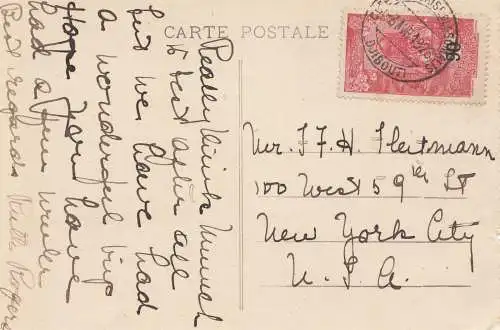 CARTE POSTALE
DJIBOUTI
90
Really think Munich
is best after all
but we have had
a wonderful trip
Hope you have
had a fine winter
Best regards Ruth Rogers
Mr. J F. H. Heitmann
100 West 59th St
New York City
U. S. A.